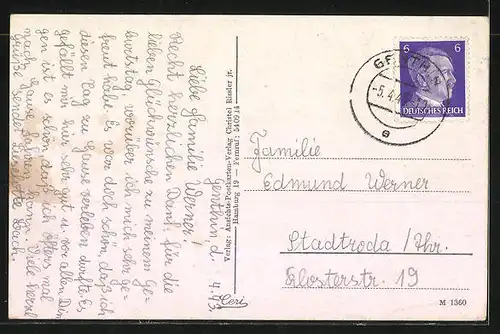 Genthin, d. 4.4.43.
Liebe Familie Werner!
Recht herzlichen Dank für die
lieben Glückwünsche zu meinem Ge-
burtstag, worüber ich mich sehr ge-
freut habe. Es war doch schön, daß ich
diesen Tag zu Hause verleben durfte. Es
gefällt mir hier sehr gut u. vor allen Din
gen ist es schön daß ich öfters mal
nach Hause fahren kann. Viele herzl.
Grüße sendet Lieselotte
Verlag: Ansichts-Postkarten-Verlag Christel Rieder jr.
Hamburg 19 — Fernruf: 540924
Ceri
6 6
DEUTSCHES REICH
-5.4.
a
Familie
Edmund Werner
Stadtroda /Thr.
Klosterstr. 19
M 1360